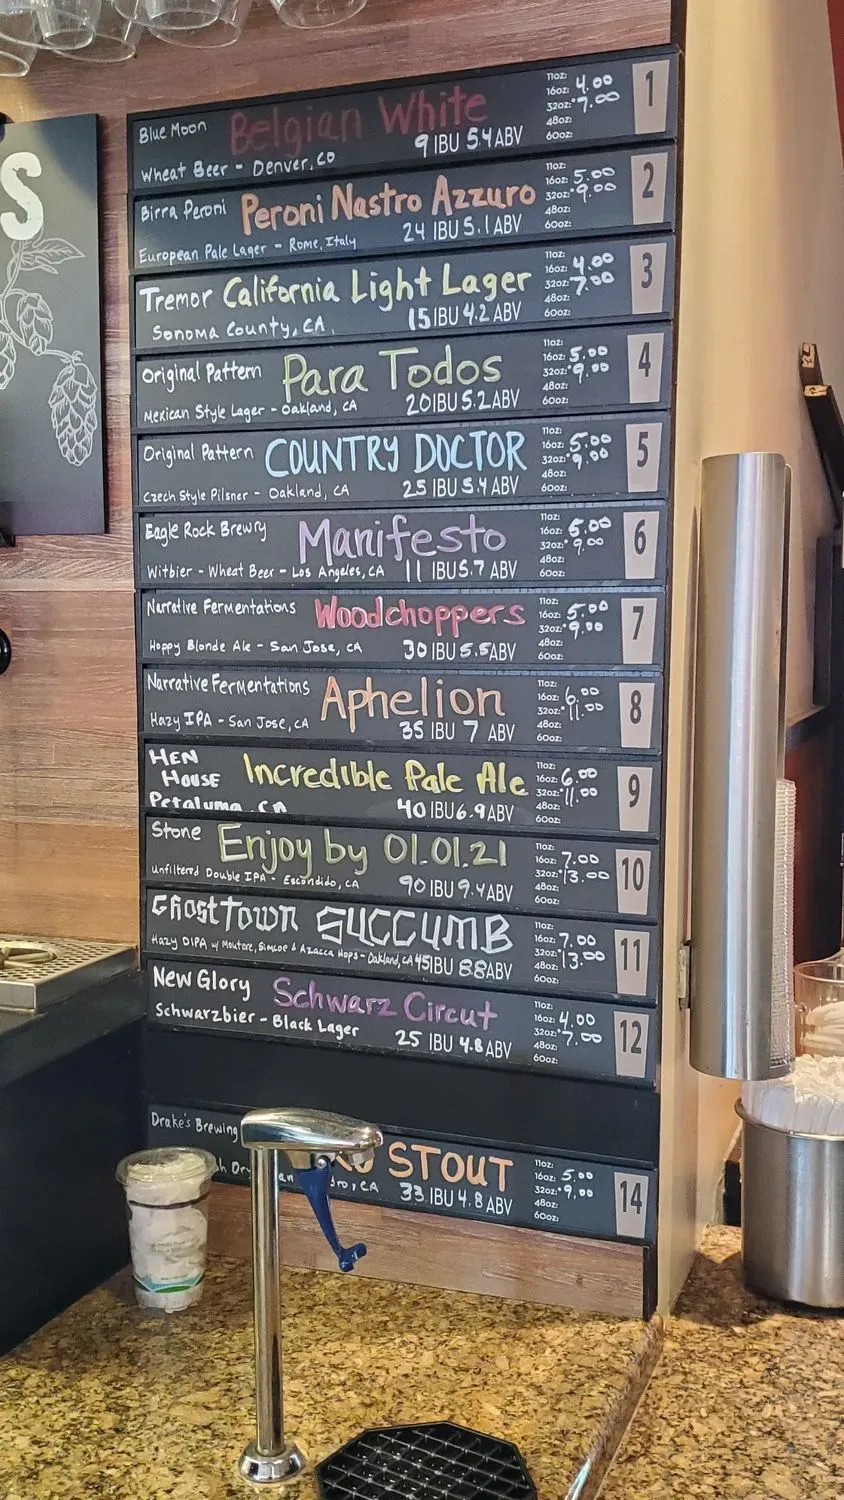 S
Blue Moon Belgian White
Wheat Beer - Denver, CO 9 IBU 5.4 ABV
11oz:
16oz: 4.00
32oz: 7.00
48oz:
60oz:
1
Birra Peroni Peroni Nastro Azzuro
European Pale Lager - Rome, Italy 24 IBU 5.1 ABV
11oz:
16oz: 5.00
32oz: 9.00
48oz:
60oz:
2
Tremor California Light Lager
Sonoma County, CA. 15 IBU 4.2 ABV
11oz:
16oz: 4.00
32oz: 7.00
48oz:
60oz:
3
Original Pattern Para Todos
Mexican Style Lager - Oakland, CA 20 IBU 5.2 ABV
11oz:
16oz: 5.00
32oz: 9.00
48oz:
60oz:
4
Original Pattern COUNTRY DOCTOR
Czech Style Pilsner - Oakland, CA 25 IBU 5.4 ABV
11oz:
16oz: 5.00
32oz: 9.00
48oz:
60oz:
5
Eagle Rock Brewry Manifesto
Witbier - Wheat Beer - Los Angeles, CA 11 IBU 5.7 ABV
11oz:
16oz: 5.00
32oz: 9.00
48oz:
60oz:
6
Narrative Fermentations Woodchoppers
Hoppy Blonde Ale - San Jose, CA 30 IBU 5.5 ABV
11oz:
16oz: 5.00
32oz: 9.00
48oz:
60oz:
7
Narrative Fermentations Aphelion
Hazy IPA - San Jose, CA 35 IBU 7 ABV
11oz:
16oz: 6.00
32oz: 11.00
48oz:
60oz:
8
HEN HOUSE Incredible Pale Ale
Petaluma, CA 40 IBU 6.9 ABV
11oz:
16oz: 6.00
32oz: 11.00
48oz:
60oz:
9
Stone Enjoy by 01.01.21
Unfiltered Double IPA - Escondido, CA 90 IBU 9.4 ABV
11oz:
16oz: 7.00
32oz: 13.00
48oz:
60oz:
10
Ghost Town SUCCUMB
Hazy DIPA w/ Moutere, Simcoe & Azacca Hops - Oakland, CA 45 IBU 8.8 ABV
11oz:
16oz: 7.00
32oz: 13.00
48oz:
60oz:
11
New Glory Schwarz Circut
Schwarzbier - Black Lager 25 IBU 4.8 ABV
11oz:
16oz: 4.00
32oz: 7.00
48oz:
60oz:
12
Drake's Brewing STOUT
CA 33 IBU 4.8 ABV
11oz:
16oz: 5.00
32oz: 9.00
48oz:
60oz:
14